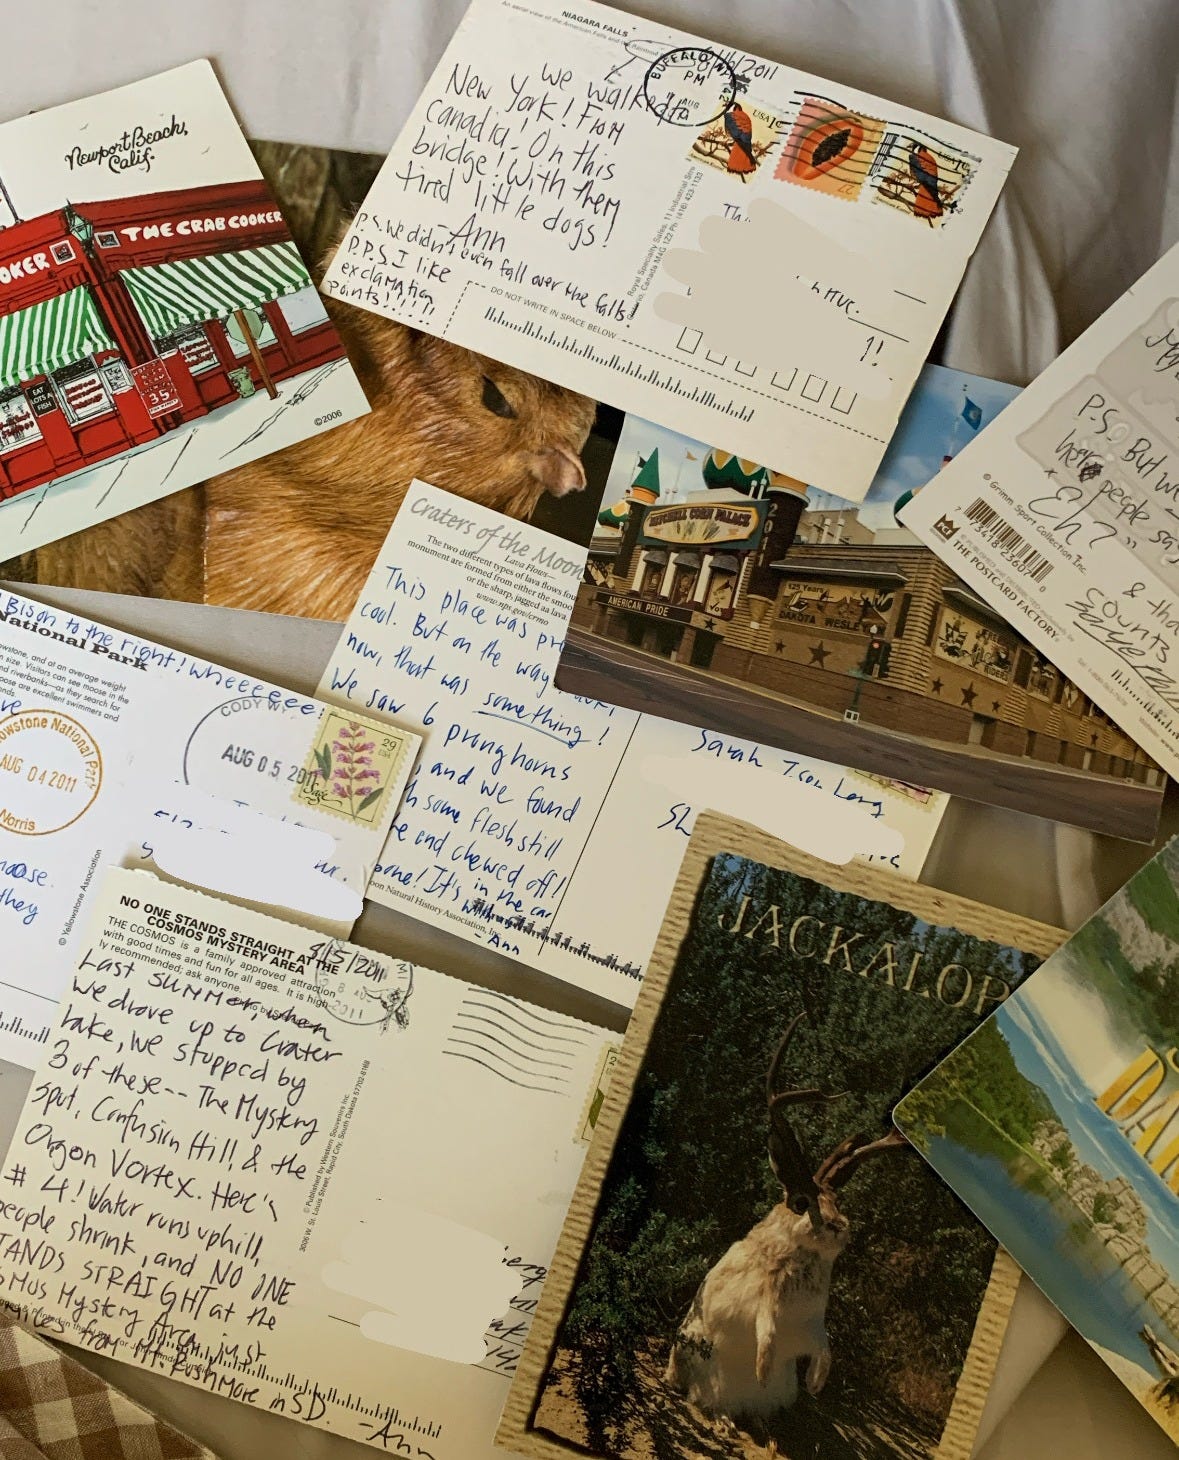 Newport Beach,
Calif.
OKER
THE CRAB COOKER
EAT
LOTS A
FISH
35
©2006
NIAGARA FALLS
An aerial view of the American Falls and the Rainbow
BUFFALO NY 142
PM
AUG
2011
USA 1c
27
USA 1c
We walked to
New York! From
Canadia! On this
bridge! With them
tired little dogs!
-Ann
P.S. We didn't even fall over the falls!
P.P.S I like
exclamation
points!!!!!!
Royal Specialty Sales, 11 Industrial
Ontario, Canada M4G 1Z2 Ph: (416) 423-1133
DO NOT WRITE IN SPACE BELOW
P.S. But we
here people say
"Eh?"
& that
counts
© Grimm Sport Collection Inc.
THE POSTCARD FACTORY
MITCHELL CORN PALACE
20
AMERICAN PRIDE
VOTE
125 Years
DAKOTA WESLEY
RIDERS
Craters of the Moon
Lava Flows—
The two different types of lava flows fou
monument are formed from either the smoo
or the sharp, jagged aa lava.
www.nps.gov/crmo
This place was pr
cool. But on the way
now, that was something!
We saw 6
pronghorns
, and we found
h some flesh still
e and chewed off!
bone! It's in the car
with
-Ann
oon Natural History Association, Inc.
Sarah Tsen Long
Bison to the right! Wheeeeeee
National Park
owstone, and at an average weight
n size. Visitors can see moose in the
and riverbanks—as they search for
oose are excellent swimmers and
nds.
ve
owstone National Park
AUG 04 2011
Norris
CODY WY
AUG 05 2011
29
USA
Sage
moose.
they
© Yellowstone Association
NO ONE STANDS STRAIGHT AT THE
COSMOS MYSTERY AREA
THE COSMOS is a family approved attraction
with good times and fun for all ages. It is high-
ly recommended; ask anyone.
8/5/2011
2011
Last summer, when
we drove up to Crater
Lake, we stopped by
3 of these-- The Mystery
Spot, Confusion Hill, & the
Oregon Vortex. Here's
# 4! Water runs uphill,
people shrink, and NO ONE
TANDS STRAIGHT at the
smos Mystery Area, just
miles from Mt. Rushmore in SD.
-Ann
© Published by Western Souvenirs Inc.
3006 W. St. Louis Street, Rapid City, South Dakota 57702-8168
JACKALOP